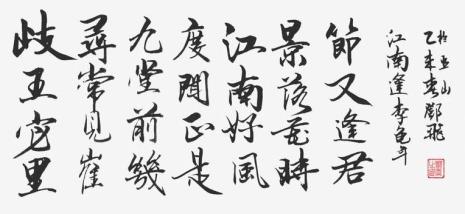 岐王宅里
尋常見崔
九堂前幾
度聞正是
江南好風
景落花時
節又逢君
江南逢李龜年
乙未春鄧飛
山